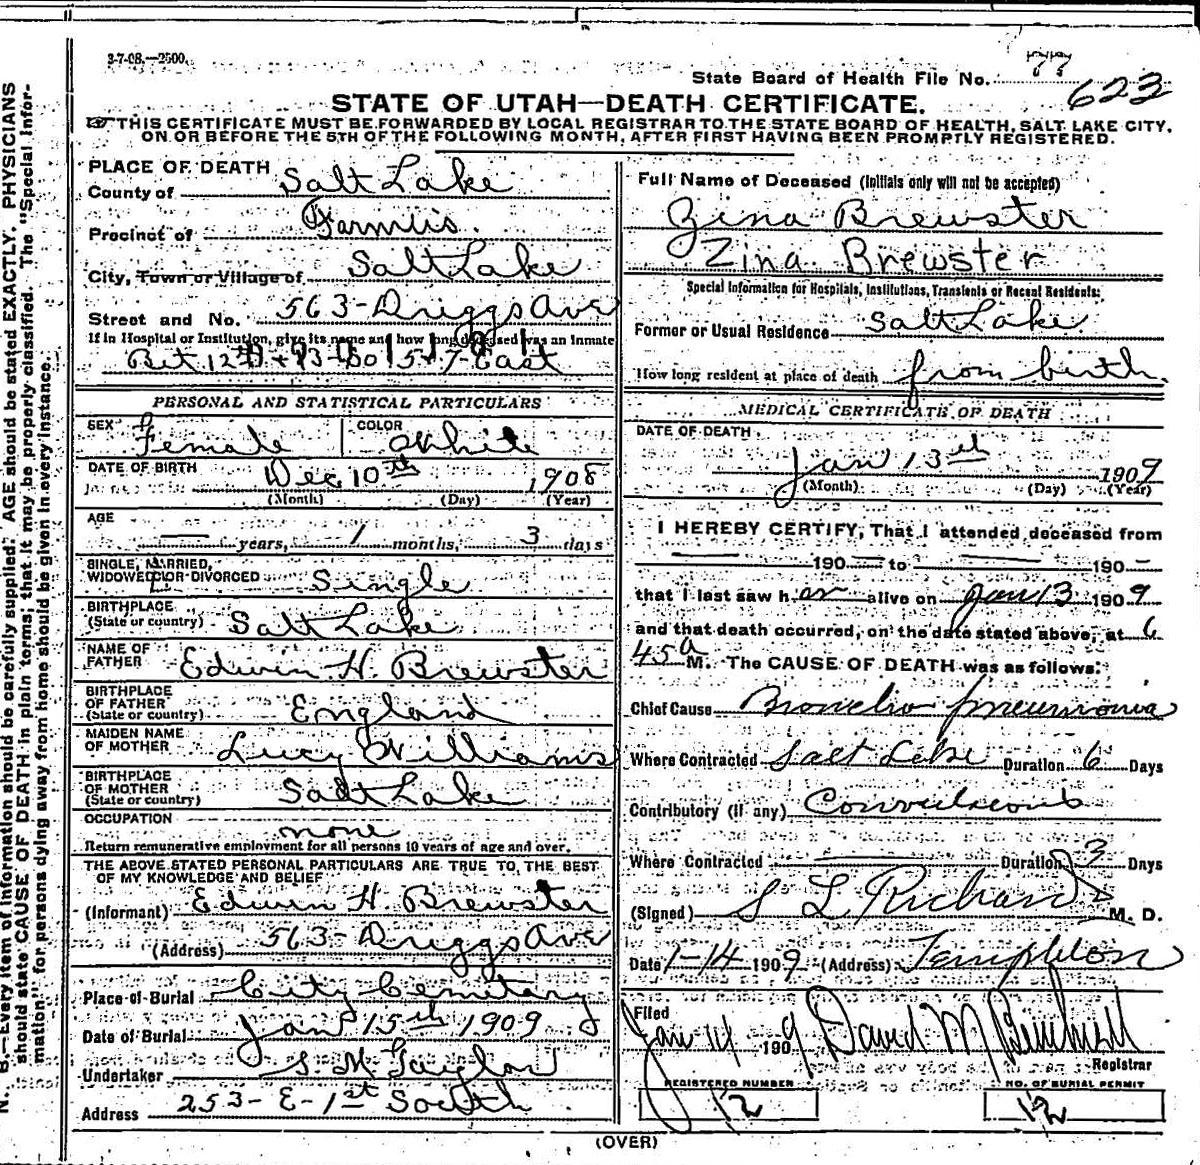 3-7-08.—2500.
State Board of Health File No. 77
623
STATE OF UTAH—DEATH CERTIFICATE.
THIS CERTIFICATE MUST BE FORWARDED BY LOCAL REGISTRAR TO THE STATE BOARD OF HEALTH, SALT LAKE CITY,
ON OR BEFORE THE 5TH OF THE FOLLOWING MONTH, AFTER FIRST HAVING BEEN PROMPTLY REGISTERED.
PLACE OF DEATH
County of Salt Lake
Precinct of
City, Town or Village of Salt Lake
Street and No. 563- Driggs Ave
If in Hospital or Institution, give its name and how long deceased was an Inmate
Bet 12th + 13 - So 5 - 7 - East
PERSONAL AND STATISTICAL PARTICULARS
SEX Female
COLOR White
DATE OF BIRTH Dec 10th 1908
(Month) (Day) (Year)
AGE
— years, 1 months, 3 days
SINGLE, MARRIED,
WIDOWED OR DIVORCED Single
BIRTHPLACE
(State or country) Salt Lake
NAME OF
FATHER Edwin H. Brewster
BIRTHPLACE
OF FATHER
(State or country) England
MAIDEN NAME
OF MOTHER Lucy Williams
BIRTHPLACE
OF MOTHER
(State or country) Salt Lake
OCCUPATION
none
Return remunerative employment for all persons 10 years of age and over.
THE ABOVE STATED PERSONAL PARTICULARS ARE TRUE TO THE BEST
OF MY KNOWLEDGE AND BELIEF
(Informant) Edwin H. Brewster
(Address) 563- Driggs Ave
Place of Burial City Cemetary
Date of Burial Jan 15th 1909
Undertaker S. M. Taylor
Address 253- E- 1st South
Full Name of Deceased (Initials only will not be accepted)
Zina Brewster
Zina Brewster
Special Information for Hospitals, Institutions, Transients or Recent Residents:
Former or Usual Residence Salt Lake
How long resident at place of death from birth.
MEDICAL CERTIFICATE OF DEATH
DATE OF DEATH
Jan 13th 1909
(Month) (Day) (Year)
I HEREBY CERTIFY, That I attended deceased from
— 190 — to — 190 —
that I last saw her alive on Jan 13 1909
and that death occurred, on the date stated above, at 6
45 a M. The CAUSE OF DEATH was as follows:
Chief Cause Broncho pneumonia
Where Contracted Salt Lake Duration 6 Days
Contributory (if any) Convulsions
Where Contracted — Duration 3 Days
(Signed) S L Richards M. D.
Date 1-14 1909 (Address) Templeton
Filed
Jan 14 1909 David M
Registrar
REGISTERED NUMBER
12
NO. OF BURIAL PERMIT
12
(OVER)
N. B.—Every item of information should be carefully supplied. AGE should be stated EXACTLY. PHYSICIANS
should state CAUSE OF DEATH in plain terms, that it may be properly classified. The "Special Infor-
mation" for persons dying away from home should be given in every instance.